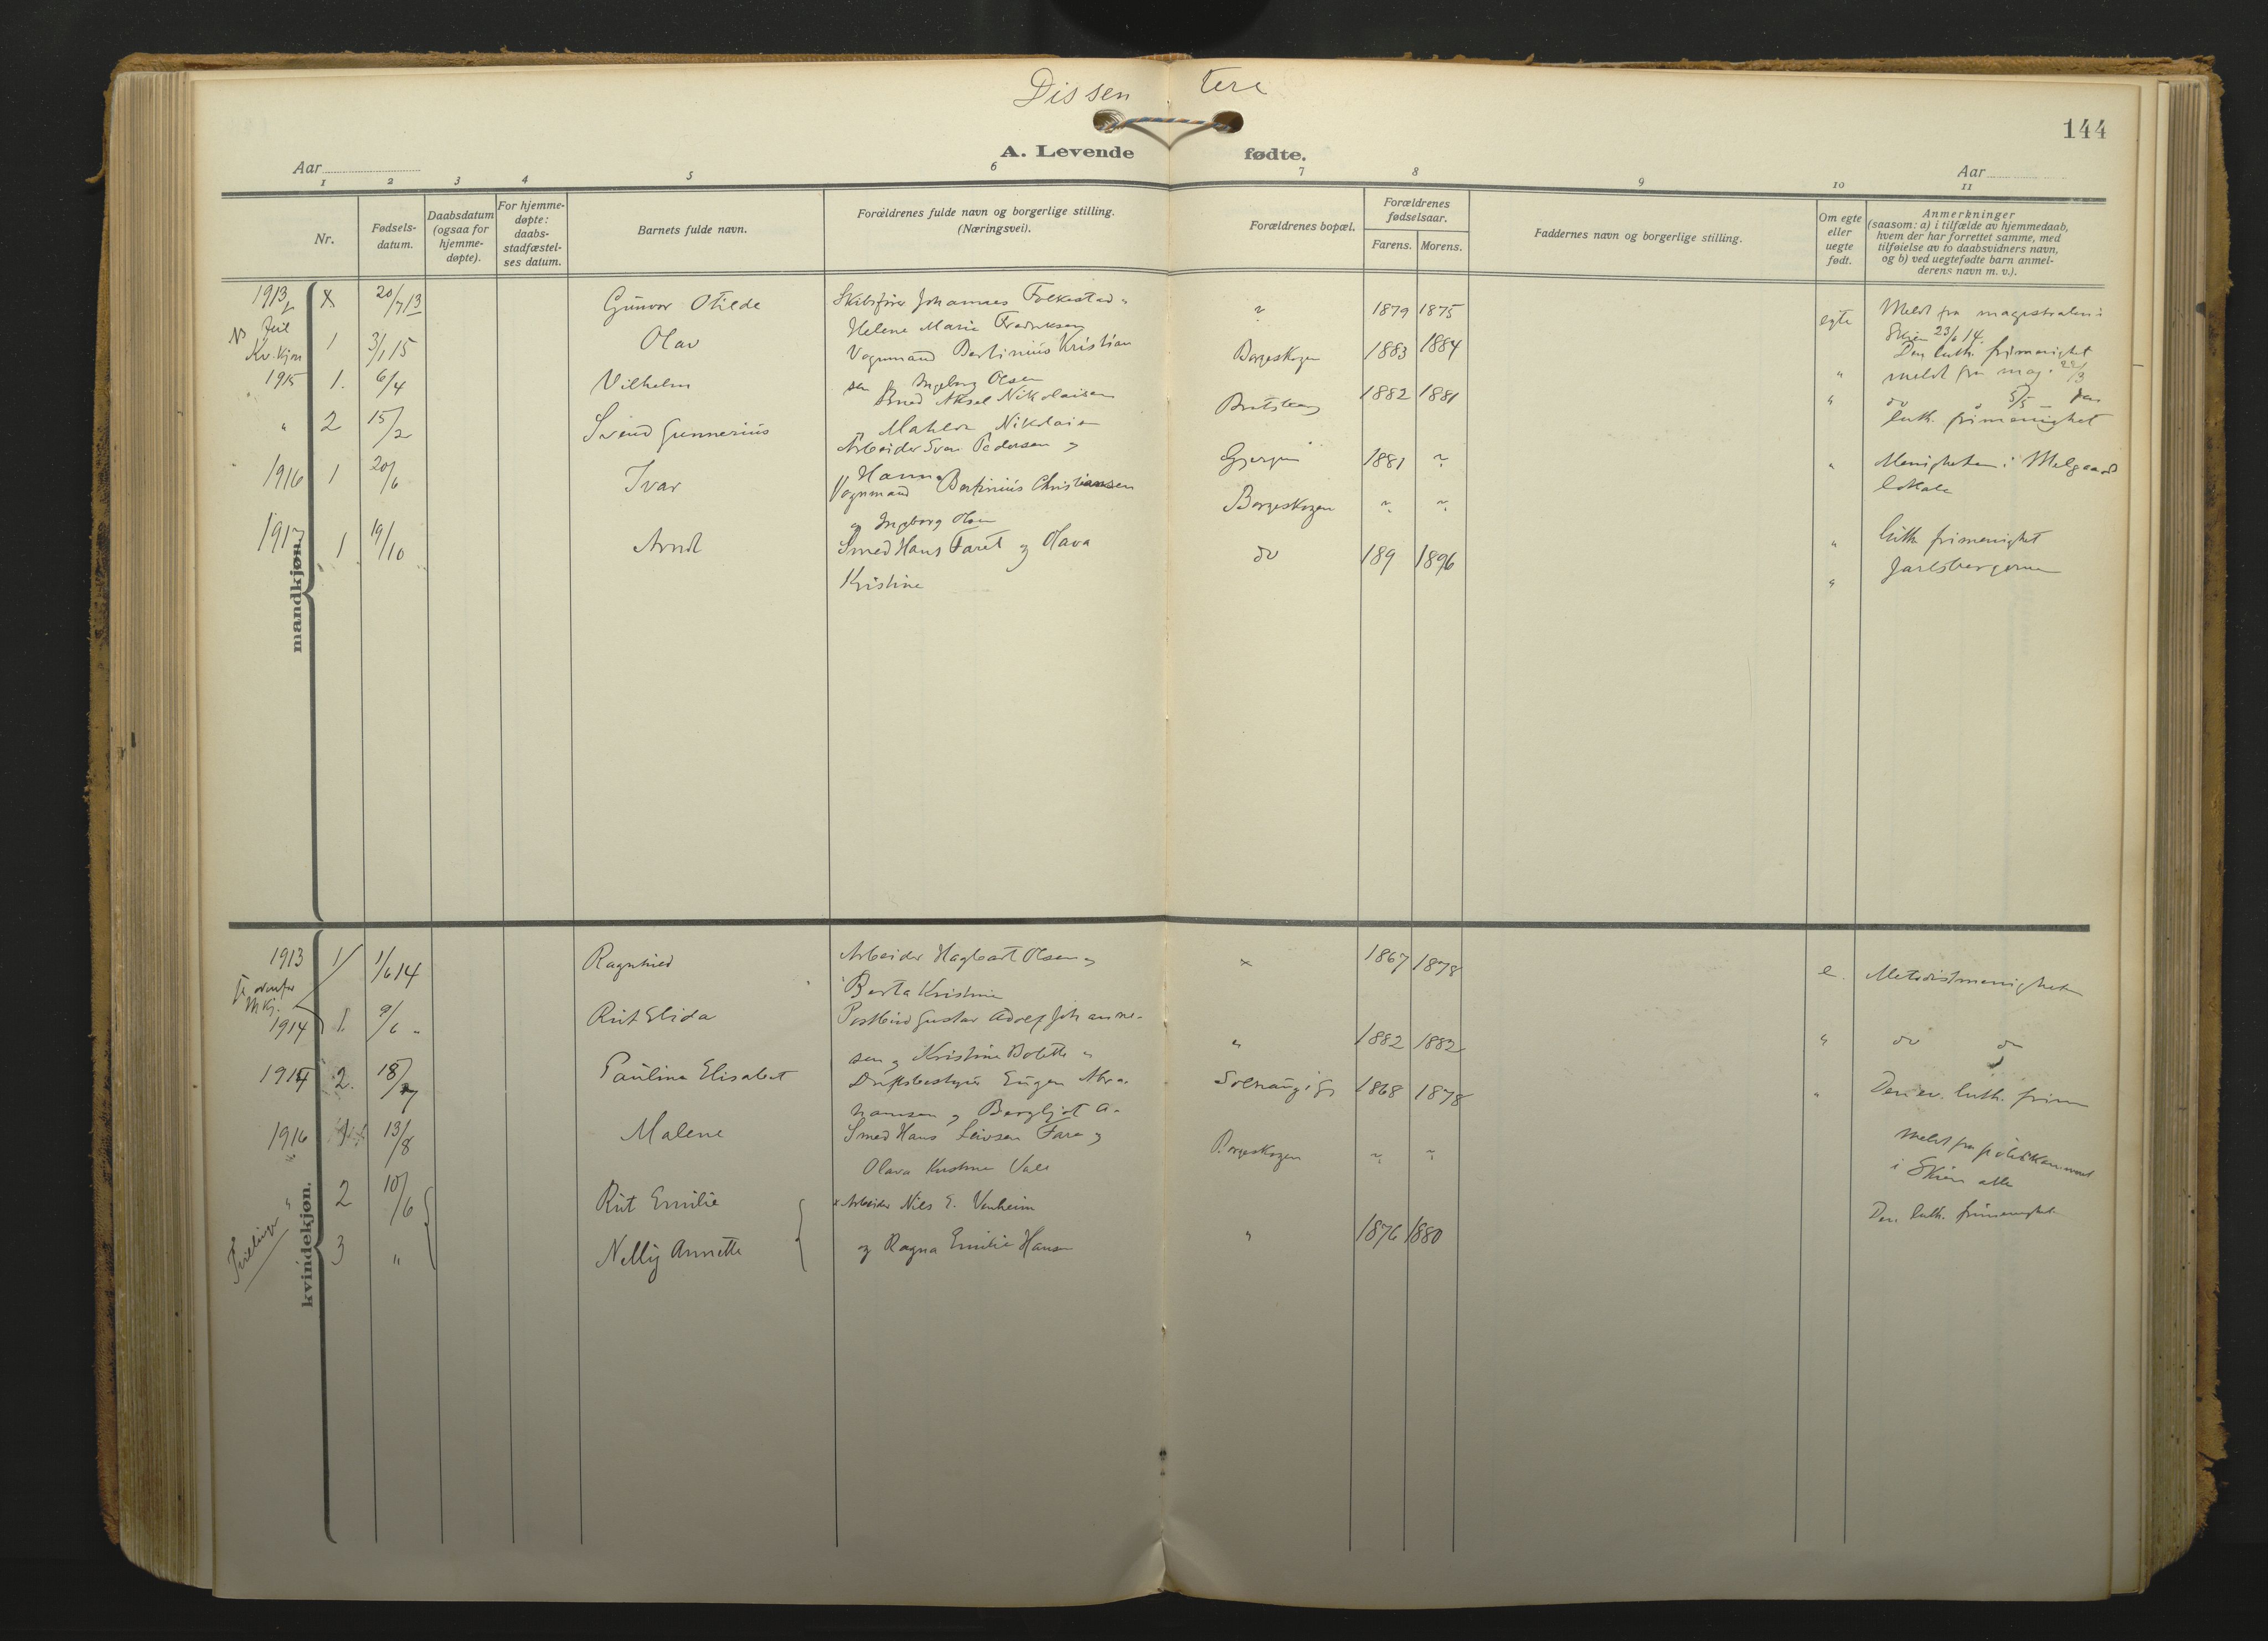 Dissen tere
144
A. Levende fødte.
Aar
Aar
1 2 3 4 5 6 7 8 9 10 11
Nr.
Fødsels-
datum.
Daabsdatum
(ogsaa for
hjemme-
døpte).
For hjemme-
døpte:
daabs-
stadfæstel-
ses datum.
Barnets fulde navn.
Forældrenes fulde navn og borgerlige stilling.
(Næringsvei).
Forældrenes bopæl.
Forældrenes
fødselsaar.
Farens. Morens.
Faddernes navn og borgerlige stilling.
Om egte
eller
uegte
født.
Anmerkninger
(saasom: a) i tilfælde av hjemmedaab,
hvem der har forrettet samme, med
tilføielse av to daabsvidners navn,
og b) ved uegtefødte barn anmel-
derens navn m. v.).
mandkjøn.
1913 x 20/7 13 Gunvor Otilde Skibsfører Johannes Folkestad
Helene Marie Fredriksen
1879 1875 egte Meldt fra magistraten i
Skien 23/6 14.
Kv. kjøn
1 3/1 15 Olav Vognmand Bertinius Kristian
sen og Ingeborg Olsen
Borgeskogen 1883 1884 " Den luth. frimenighet
meldt fra mag. 22/3
1915 1. 6/4 Vilhelm Smed Aksel Nikolaisen
og Nikolaisen
1882 1881 " do 5/5
luth. frimenighet
" 2 15/2 Svend Gunnerius Arbeider Pedersen og
Hanna
Gjerpen 1881 " Menigheten i Melgaards
lokale
1916 1 20/6 Ivar Vognmand Bertinius Christiansen
og Ingeborg Olsen
Borgeskogen " luth. frimenighet
1917 1 19/10 Arndt Smed Hans Faret og Olava
Kristine
do 189 1896 "
kvindekjøn.
1913 1 1/6 14 Ragnhild Arbeider Hagbart Olsen og
Berta Kristine
x 1867 1878 e. Metodistmenigheten
1914 1. 9/6 Rut Elida Postbud Gustav Adolf Johanne-
sen og Kristine Bolette
" 1882 1882 " do do
2. 18/7 Paulina Elisabet Driftsbestyrer Eugen Abra-
hamsen og Bergljot A.
1868 1878 " Den ev. luth. frim
1916 13/8 Malene Smed Hans Fare og
Olava Kristine
Borgeskogen
i Skien alle
" 2 10/6 Rut Emilie x Arbeider Nils E. Venheim
3 " Nelly Annette og Ragna Emilie Hansen
" 1876 1880 Den luth. frimenighet